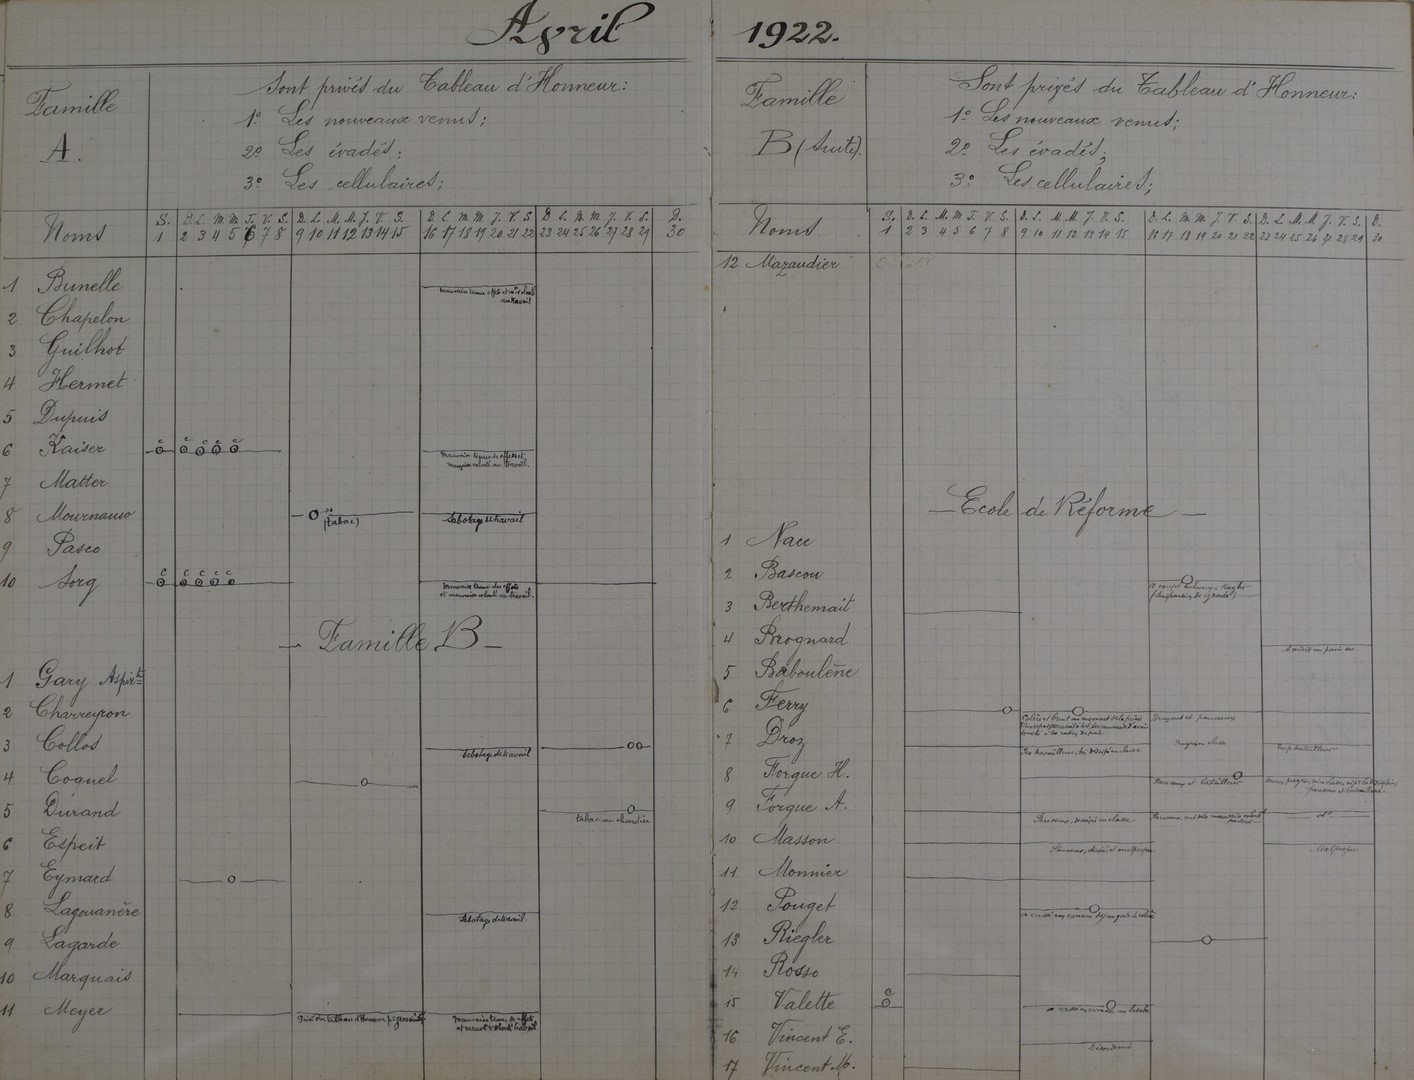 Avril 1922.
Famille
A.
Sont privés du Tableau d'Honneur:
1º Les nouveaux venus;
2º Les évadés;
3º Les cellulaires;
Noms
S. D. L. M. M. J. V. S. D. L. M. M. J. V. S. D. L. M. M. J. V. S. D. L. M. M. J. V. S. D.
1 2 3 4 5 6 7 8 9 10 11 12 13 14 15 16 17 18 19 20 21 22 23 24 25 26 27 28 29 30
1 Bunelle
au travail
2 Chapelon
3 Guilhot
4 Hermet
5 Dupuis
6 Kaiser c c c c c
Mauvaise tenue des effets et
mauvaise volonté au travail.
7 Matter
8 Mournaud (tabac) Sabotage de travail
9 Pasco
10 Sorg c c c c c
Mauvaise tenue des effets
et mauvaise volonté au travail.
Famille B
1 Gary Aspirt
2 Charreyron
3 Collos Sabotage de travail
4 Coquel
5 Durand
tabac au chantier
6 Espeit
7 Eymard
8 Lagouanère Sabotage de travail
9 Lagarde
10 Marquais
11 Meyer
Mauvaise tenue des effets
Famille
B (Suite).
Sont privés du Tableau d'Honneur:
1º Les nouveaux venus;
2º Les évadés;
3º Les cellulaires;
Noms
S. D. L. M. M. J. V. S. D. L. M. M. J. V. S. D. L. M. M. J. V. S. D. L. M. M. J. V. S. D.
1 2 3 4 5 6 7 8 9 10 11 12 13 14 15 16 17 18 19 20 21 22 23 24 25 26 27 28 29 30
12 Mazaudier
Ecole de Réforme
1 Nau
2 Bascou
3 Berthemait
4 Brognard
5 Baboulène
6 Ferry
Bruyant et paresseux
7 Droz
8 Forgue H.
Paresseux et batailleur
9 Forgue A.
10 Masson
Malpropre
11 Monnier
12 Pouget
13 Riegler
14 Rosso
15 Valette c
16 Vincent E.
17 Vincent M.